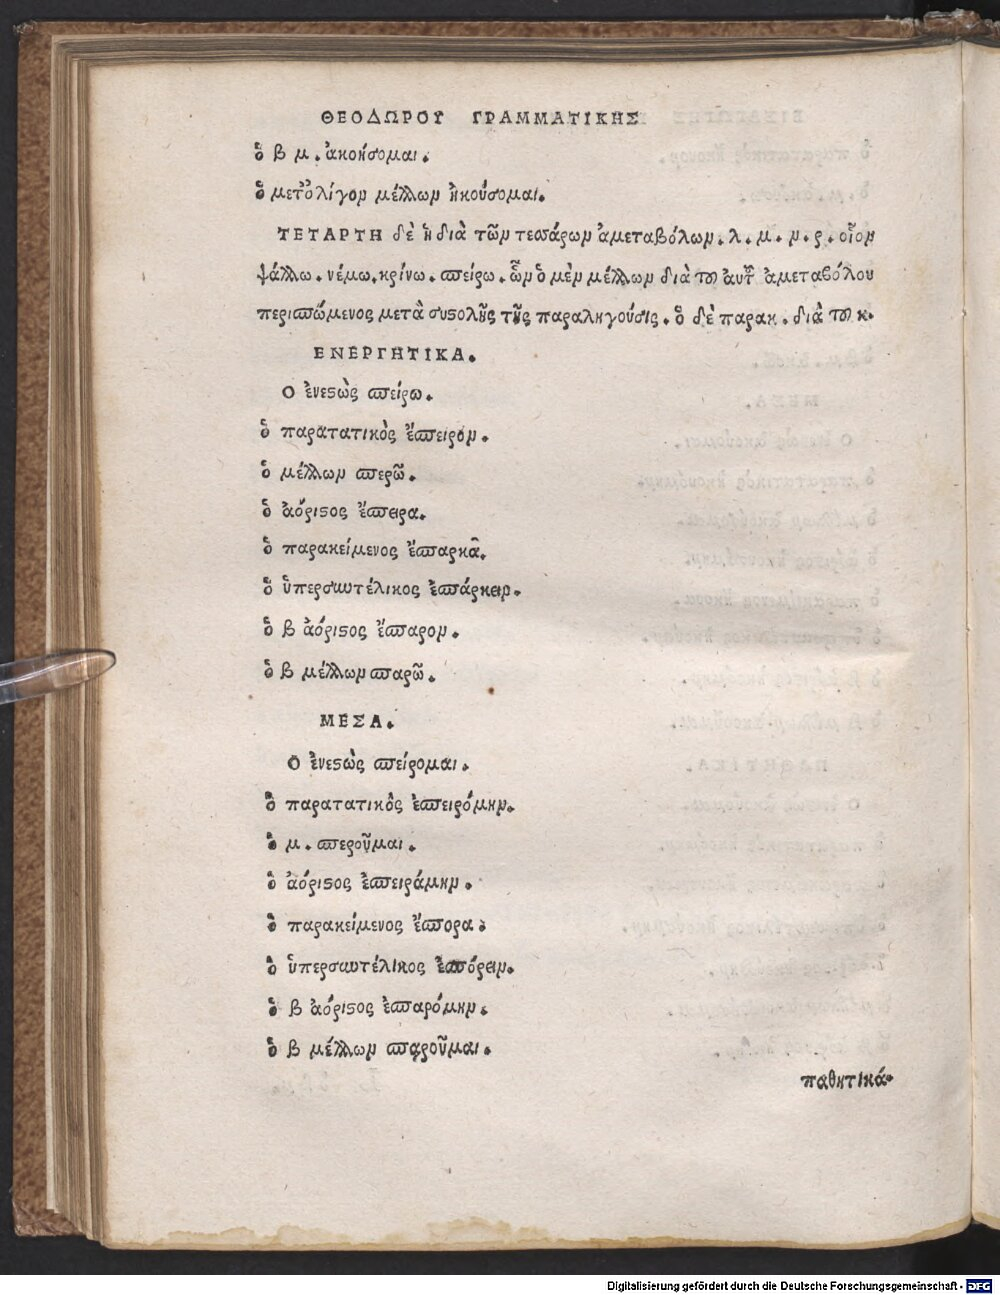 ΘΕΟΔΩΡΟΥ ΓΡΑΜΜΑΤΙΚΗΣ
ὁ β μ. ἀκοήσομαι.
ὁ μετ᾽ ὀλίγον μέλλων ἠκούσομαι.
ΤΕΤΑΡΤΗ δὲ ἡ διὰ τῶν τεσσάρων ἀμεταβόλων. λ. μ. ν. ρ. οἷον
ψάλλω. νέμω. κρίνω. σπείρω. ὧν ὁ μὲν μέλλων διὰ τοῦ αὐτοῦ ἀμεταβόλου
περισπώμενος μετὰ συστολῆς τῆς παραληγούσης. ὁ δὲ παρακ. διὰ τοῦ κ.
ΕΝΕΡΓΗΤΙΚΑ.
Ο ἐνεστὼς σπείρω.
ὁ παρατατικὸς ἔσπειρον.
ὁ μέλλων σπερῶ.
ὁ ἀόριστος ἔσπειρα.
ὁ παρακείμενος ἔσπαρκα.
ὁ ὑπερσυντέλικος ἐσπάρκειν.
ὁ β ἀόριστος ἔσπαρον.
ὁ β μέλλων σπαρῶ.
ΜΕΣΑ.
Ο ἐνεστὼς σπείρομαι.
ὁ παρατατικὸς ἐσπειρόμην.
ὁ μ. σπεροῦμαι.
ὁ ἀόριστος ἐσπειράμην.
ὁ παρακείμενος ἔσπορα.
ὁ ὑπερσυντέλικος ἐσπόρειν.
ὁ β ἀόριστος ἐσπαρόμην.
ὁ β μέλλων σπαροῦμαι.
παθητικά.
Digitalisierung gefördert durch die Deutsche Forschungsgemeinschaft - DFG